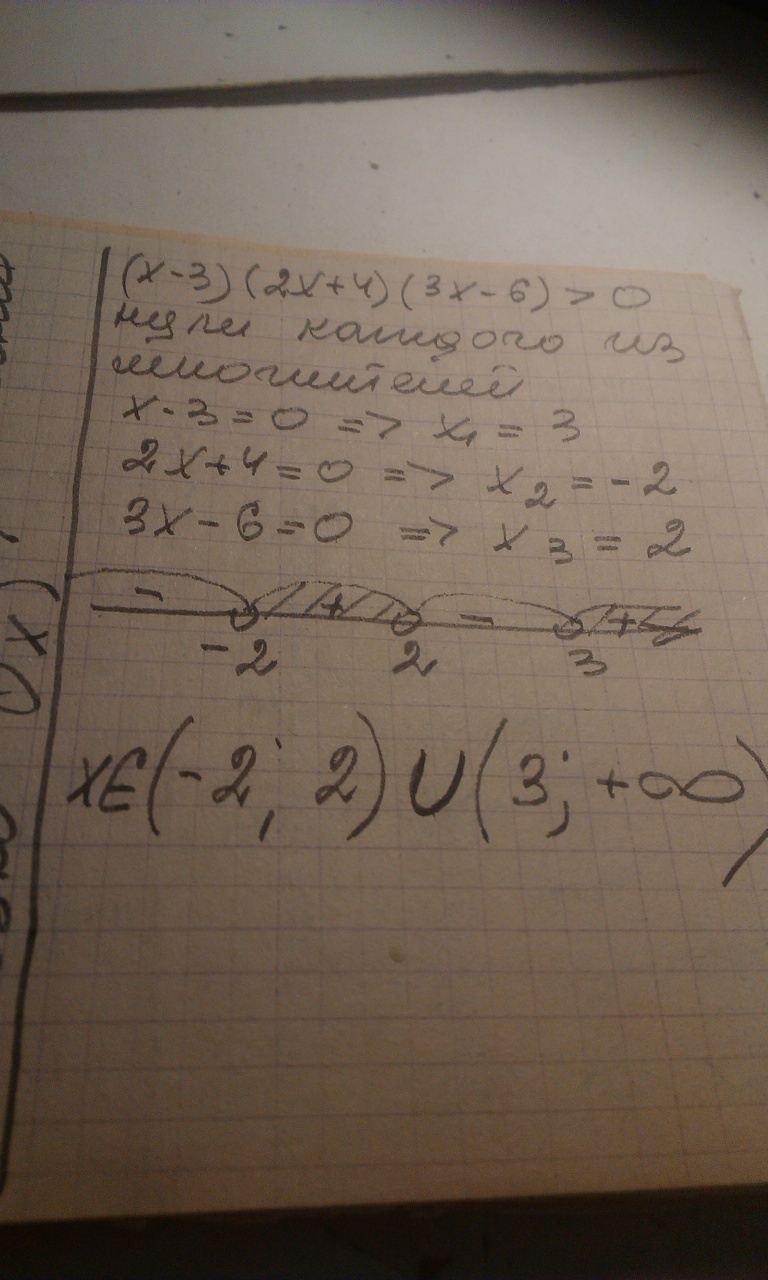 (x-3)(2x+4)(3x-6)>0
нули каждого из
множителей
x-3=0 => x₁ = 3
2x+4=0 => x₂ = -2
3x-6=0 => x₃ = 2
- + - +
-2 2 3
x∈(-2; 2)∪(3; +∞)